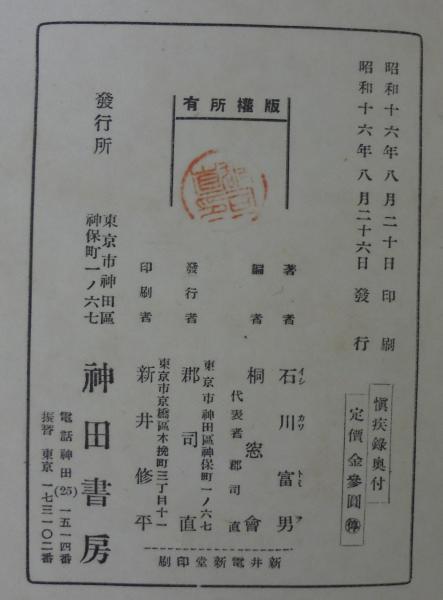 昭和十六年八月二十日印刷
昭和十六年八月二十六日發行
愼疾錄奧付
定價金參圓
停
版權所有
著者 石川富男
イシ カワ トミ ヲ
編者 桐窓會
代表者 郡司直
東京市神田區神保町一ノ六七
發行者 郡司直
東京市京橋區木挽町三丁目十一
印刷者 新井修平
新井電新堂印刷
發行所
東京市神田區
神保町一ノ六七
神田書房
電話神田(25)一五一四番
振替東京一七三一〇二番